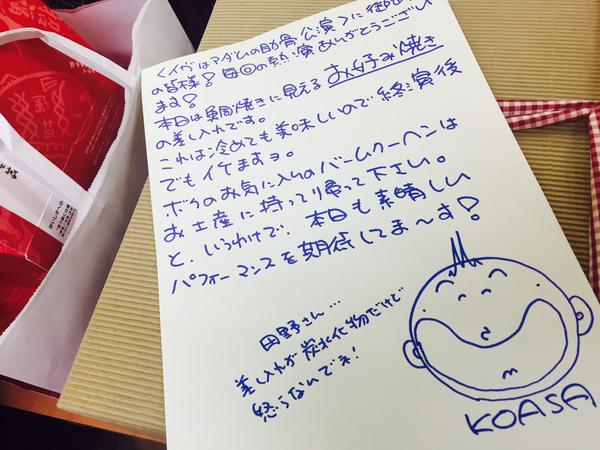 くイヴはアダムの肋骨公演〉に
の皆様！毎回の熱演ありがとうござい
ます！
本日は鯛焼きに見えるお好み焼き
の差し入れです。
これは冷めても美味しいので終演後
でもイケますョ。
ボクのお気に入りのバームクーヘンは
お土産に持って帰って下さい。
と、いうわけで、本日も素晴しい
パフォーマンスを期待してま〜す！
田野さん…
差し入れが炭水化物だけど
怒らなんでネ！
KOASA